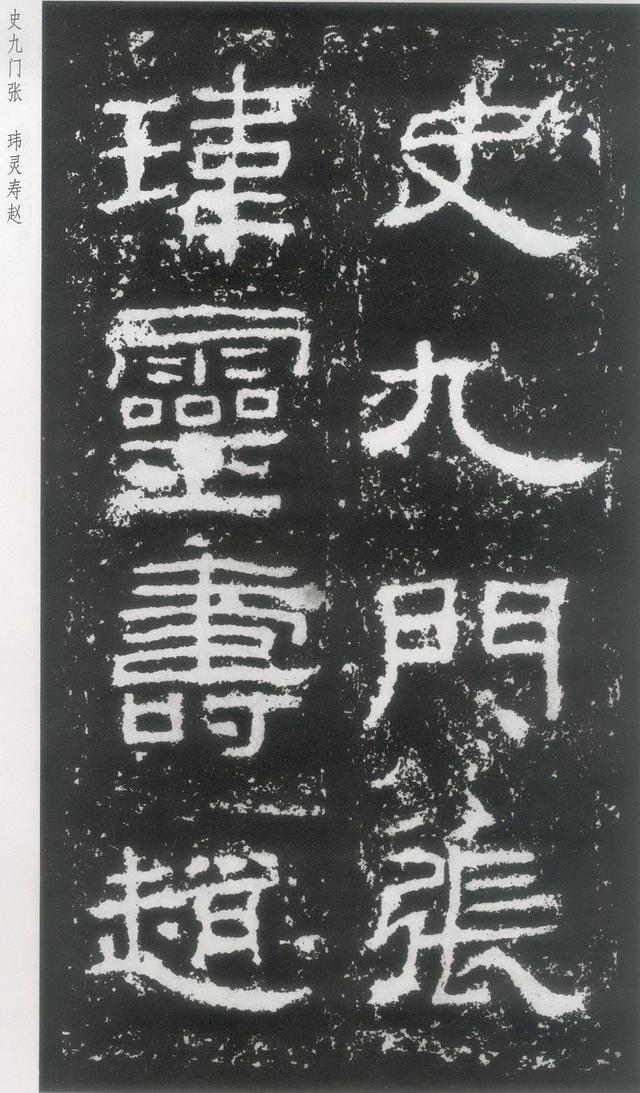 史九門張
瑋靈壽趙
史九门张　玮灵寿赵